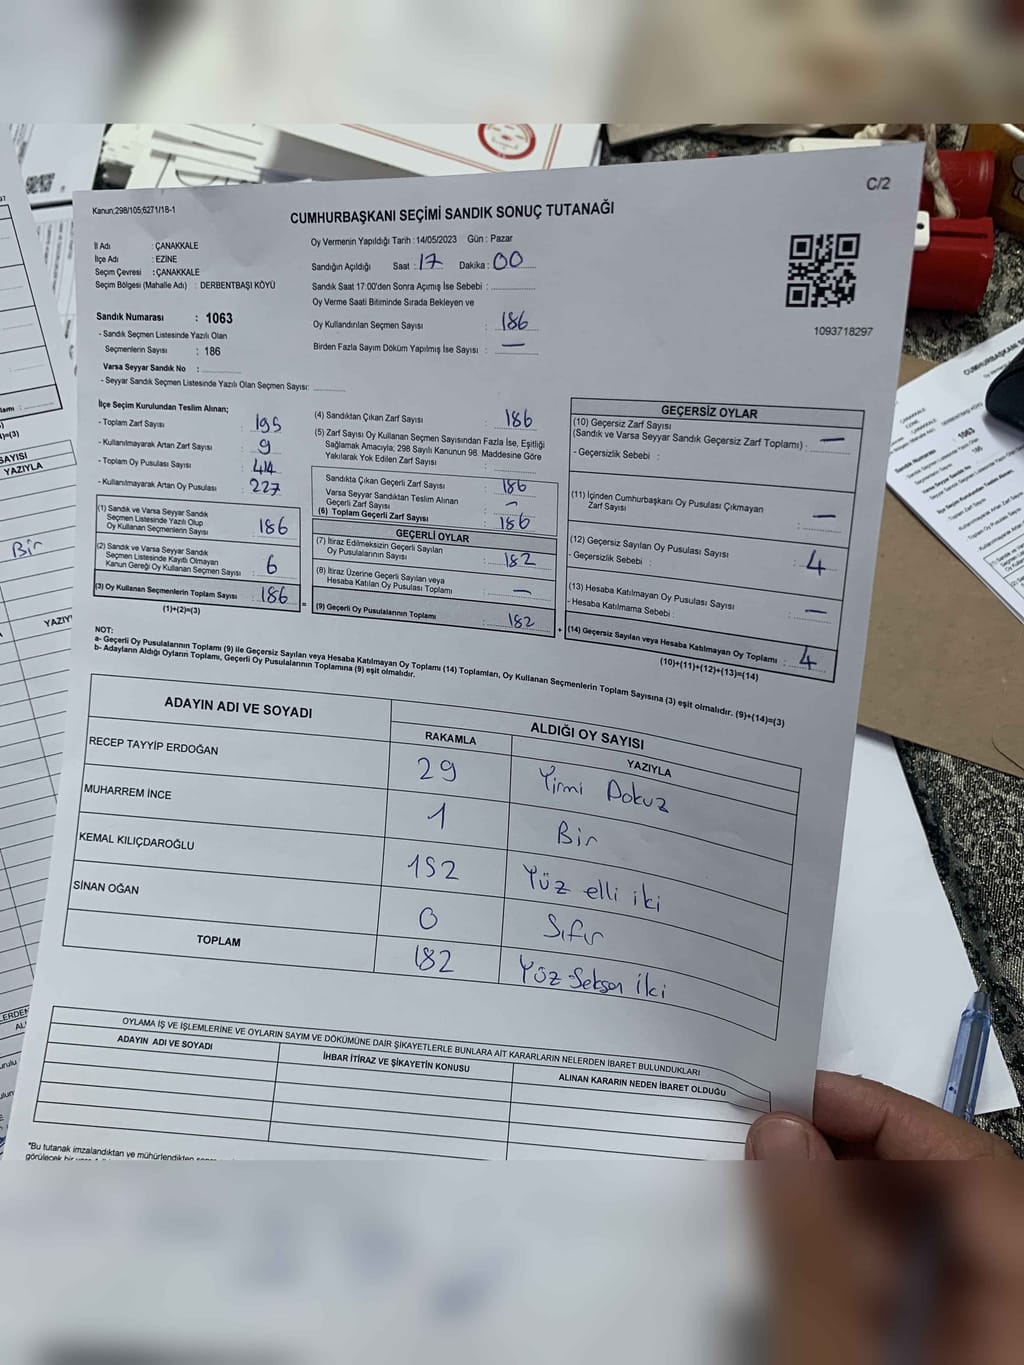 C/2
Kanun;298/105;6271/18-1
CUMHURBAŞKANI SEÇİMİ SANDIK SONUÇ TUTANAĞI
İl Adı : ÇANAKKALE
İlçe Adı : EZİNE
Seçim Çevresi : ÇANAKKALE
Seçim Bölgesi (Mahalle Adı) : DERBENTBAŞI KÖYÜ
Oy Vermenin Yapıldığı Tarih : 14/05/2023 Gün : Pazar
Sandığın Açıldığı Saat : 17 Dakika : 00
Sandık Saat 17:00'den Sonra Açımış İse Sebebi :
Oy Verme Saati Bitiminde Sırada Bekleyen ve
Oy Kullandırılan Seçmen Sayısı : 186
Birden Fazla Sayım Döküm Yapılmış İse Sayısı : —
1093718297
Sandık Numarası : 1063
- Sandık Seçmen Listesinde Yazılı Olan
Seçmenlerin Sayısı : 186
Varsa Seyyar Sandık No :
- Seyyar Sandık Seçmen Listesinde Yazılı Olan Seçmen Sayısı:
İlçe Seçim Kurulundan Teslim Alınan;
- Toplam Zarf Sayısı : 195
- Kullanılmayarak Artan Zarf Sayısı : 9
- Toplam Oy Pusulası Sayısı : 414
- Kullanılmayarak Artan Oy Pusulası : 227
(1) Sandık ve Varsa Seyyar Sandık
Seçmen Listesinde Yazılı Olup
Oy Kullanan Seçmenlerin Sayısı : 186
(2) Sandık ve Varsa Seyyar Sandık
Seçmen Listesinde Kayıtlı Olmayan
Kanun Gereği Oy Kullanan Seçmen Sayısı : 6
(3) Oy Kullanan Seçmenlerin Toplam Sayısı : 186
(1)+(2)=(3)
(4) Sandıktan Çıkan Zarf Sayısı : 186
(5) Zarf Sayısı Oy Kullanan Seçmen Sayısından Fazla İse, Eşitliği
Sağlamak Amacıyla; 298 Sayılı Kanunun 98. Maddesine Göre
Yakılarak Yok Edilen Zarf Sayısı :
Sandıkta Çıkan Geçerli Zarf Sayısı : 186
Varsa Seyyar Sandıktan Teslim Alınan
Geçerli Zarf Sayısı : —
(6) Toplam Geçerli Zarf Sayısı : 186
GEÇERLİ OYLAR
(7) İtiraz Edilmeksizin Geçerli Sayılan
Oy Pusulalarının Sayısı : 182
(8) İtiraz Üzerine Geçerli Sayılan veya
Hesaba Katılan Oy Pusulası Toplamı : —
(9) Geçerli Oy Pusulalarının Toplamı : 182
GEÇERSİZ OYLAR
(10) Geçersiz Zarf Sayısı
(Sandık ve Varsa Seyyar Sandık Geçersiz Zarf Toplamı) : —
- Geçersizlik Sebebi :
(11) İçinden Cumhurbaşkanı Oy Pusulası Çıkmayan
Zarf Sayısı : —
(12) Geçersiz Sayılan Oy Pusulası Sayısı : 4
- Geçersizlik Sebebi :
(13) Hesaba Katılmayan Oy Pusulası Sayısı : —
- Hesaba Katılmama Sebebi :
(14) Geçersiz Sayılan veya Hesaba Katılmayan Oy Toplamı : 4
(10)+(11)+(12)+(13)=(14)
NOT:
a- Geçerli Oy Pusulalarının Toplamı (9) ile Geçersiz Sayılan veya Hesaba Katılmayan Oy Toplamı (14) Toplamları, Oy Kullanan Seçmenlerin Toplam Sayısına (3) eşit olmalıdır. (9)+(14)=(3)
b- Adayların Aldığı Oyların Toplamı, Geçerli Oy Pusulalarının Toplamına (9) eşit olmalıdır.
ADAYIN ADI VE SOYADI
ALDIĞI OY SAYISI
RAKAMLA YAZIYLA
RECEP TAYYİP ERDOĞAN 29 Yirmi Dokuz
MUHARREM İNCE 1 Bir
KEMAL KILIÇDAROĞLU 152 Yüz elli iki
SİNAN OĞAN 0 Sıfır
TOPLAM 182 Yüz Seksen İki
OYLAMA İŞ VE İŞLEMLERİNE VE OYLARIN SAYIM VE DÖKÜMÜNE DAİR ŞİKAYETLERLE BUNLARA AİT KARARLARIN NELERDEN İBARET BULUNDUKLARI
ADAYIN ADI VE SOYADI
İHBAR İTİRAZ VE ŞİKAYETİN KONUSU
ALINAN KARARIN NEDEN İBARET OLDUĞU
*Bu tutanak imzalandıktan ve mühürlendikten
SAYISI
YAZIYLA
Bir
CUMHURBAŞKANI
ÇANAKKALE
1063